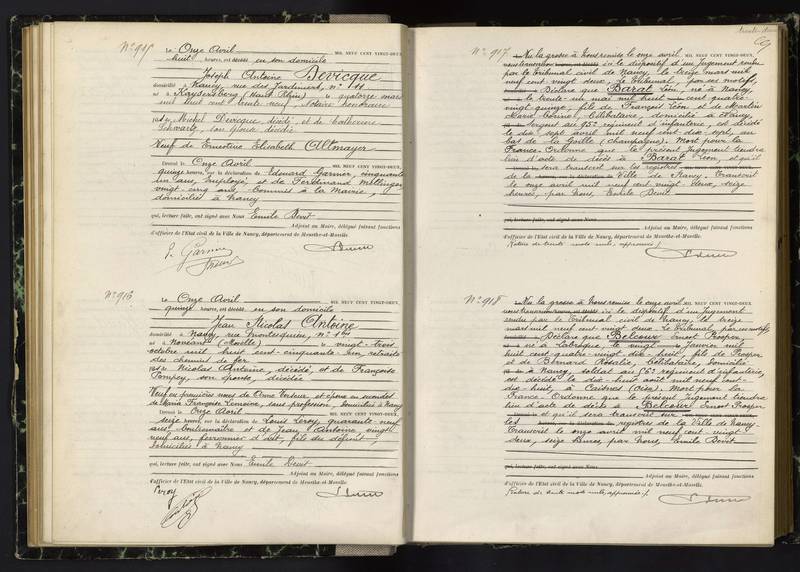 N° 915
Le Onze Avril MIL NEUF CENT VINGT-DEUX,
huit heures, est décédé en son domicile
Joseph Antoine Devicque
domicilié à Nancy, rue des Jardiniers, n°
né à Kaysersberg (Haut-Rhin) le quatorze mars
mil huit cent trente neuf, Notaire honoraire
fils de Michel Devicque, décédé, et de Catherine
Schwartz, son épouse décédée
Veuf de Ernestine Elisabeth Altmayer
Dressé le Onze Avril MIL NEUF CENT VINGT-DEUX,
quinze heures, sur la déclaration de Edouard Garnier, cinquante
un ans, employé, et de Ferdinand
vingt-cinq ans, Commis à la Mairie,
domiciliés à Nancy
qui, lecture faite, ont signé avec Nous Emile Devit
Adjoint au Maire, délégué faisant fonctions
d'officier de l'Etat civil de la Ville de Nancy, département de Meurthe-et-Moselle.
E. Garnier
N° 916
Le Onze Avril MIL NEUF CENT VINGT-DEUX,
quinze heures, est décédé en son domicile
Jean Nicolas Antoine
domicilié à Nancy rue Montesquieu, n° 1
né à Noréant (Moselle) le vingt-trois
octobre mil huit cent cinquante un, retraité
des chemins de fer
fils de Nicolas Antoine, décédé, et de Françoise
Pompey, son épouse, décédée
Veuf en premières noces de Anne et époux en secondes
de Maria Françoise Lemoine, sans profession, domiciliée à Nancy
Dressé le Onze Avril MIL NEUF CENT VINGT-DEUX,
seize heures, sur la déclaration de Louis Leroy, quarante neuf
ans, et de Jean Antoine vingt
neuf ans, ferronnier d'art, fils du défunt,
domiciliés à Nancy
qui, lecture faite, ont signé avec Nous Emile Devit
Adjoint au Maire, délégué faisant fonctions
d'officier de l'Etat civil de la Ville de Nancy, département de Meurthe-et-Moselle.
Leroy
69
N° 917
Vu la grosse à Nous remise le onze avril MIL NEUF CENT VINGT-DEUX,
ici le dispositif d'un Jugement rendu
par le tribunal civil de Nancy, le treize mars mil
neuf cent vingt deux. Le Tribunal, par ces motifs,
Déclare que Barat Léon, né à Nancy,
le trente un mai mil huit cent quatre
vingt quinze, fils de François Léon et de Martin
Marie Corine, Célibataire, domicilié à Nancy,
Sergent au 95e régiment d'infanterie, est décédé
le dix sept avril mil neuf cent dix-sept, au
bat de la Goille (Champagne). Mort pour la
France. Ordonne que le présent Jugement tiendra
lieu d'acte de décès à Barat Léon, et qu'il
sera transcrit sur les registres
de la Ville de Nancy. Transcrit
le onze avril mil neuf cent vingt-deux, seize
heures, par Nous, Emile Devit
qui, lecture faite, ont signé avec Nous
Adjoint au Maire, délégué faisant fonctions
d'officier de l'Etat civil de la Ville de Nancy, département de Meurthe-et-Moselle.
Rature de trente mots nuls, approuvée /.
N° 918
Vu la grosse à Nous remise le onze avril MIL NEUF CENT VINGT-DEUX
ici le dispositif d'un Jugement
rendu par le Tribunal civil de Nancy, le treize
mars mil neuf cent vingt deux. Le Tribunal, par ces motifs,
Déclare que Belcour Ernest Prosper,
né à Labrique le vingt janvier mil
huit cent quatre vingt dix-huit, fils de Prosper
et de Bernard Rosalie, Célibataire, domicilié
à Nancy, soldat au 56e régiment d'infanterie,
est décédé le dix-huit août mil neuf cent-
dix-huit, à (Oise). Mort pour la
France. Ordonne que le présent Jugement tiendra
lieu d'acte de décès à Belcour Ernest Prosper
et qu'il sera transcrit sur
les registres de la Ville de Nancy.
Transcrit le onze avril mil neuf cent vingt
deux, seize heures, par Nous, Emile Devit
qui, lecture faite, ont signé avec Nous
Adjoint au Maire, délégué faisant fonctions
d'officier de l'Etat civil de la Ville de Nancy, département de Meurthe-et-Moselle.
Rature de trente mots nuls, approuvée /.